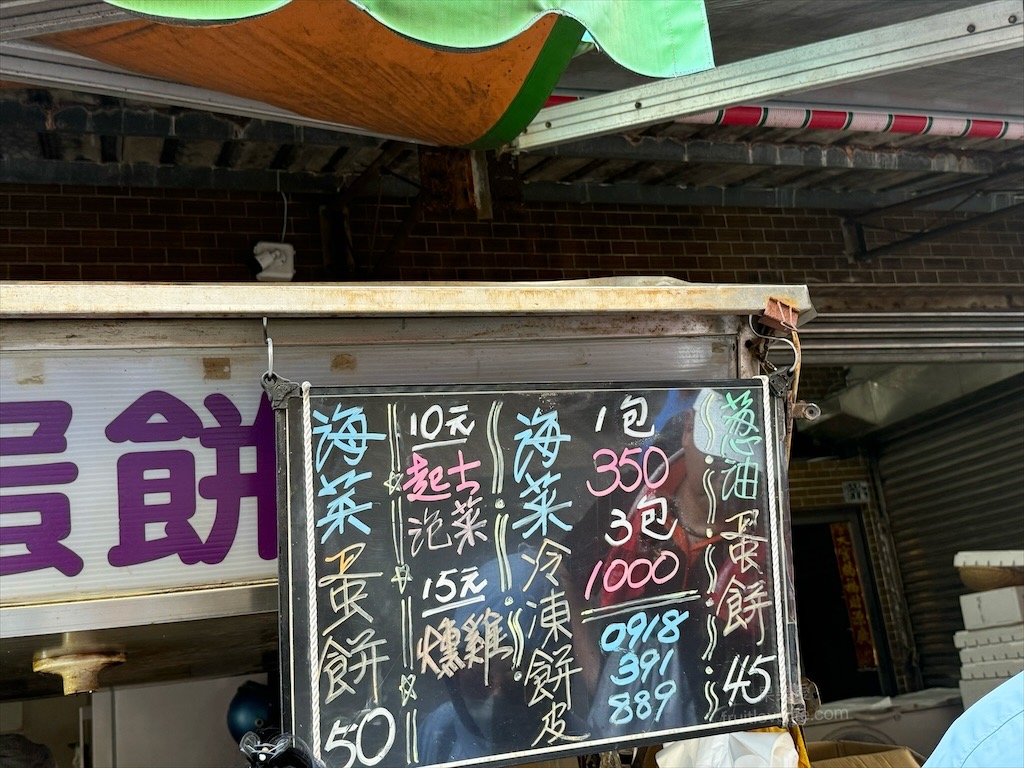 蛋餅
海菜蛋餅50
10元
起士
泡菜
15元
燻雞
海菜冷凍餅皮
1包
350
3包
1000
0918
391
889
蔥油蛋餅45